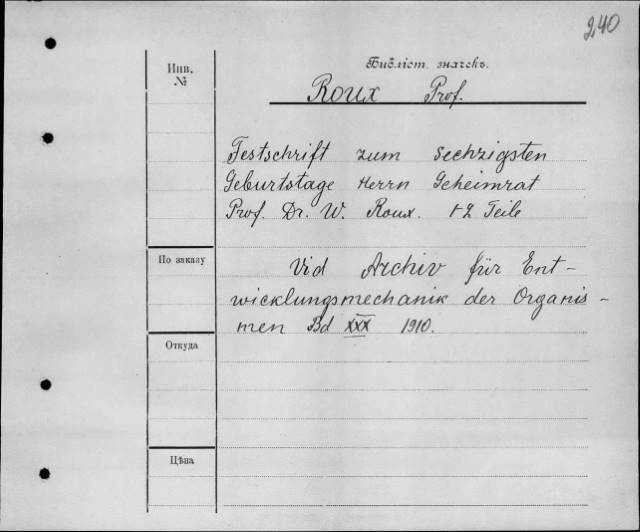 240
Инв.
№
Библіот. значекъ.
Roux Prof.
Festschrift zum sechzigsten
Geburtstage Herrn Geheimrat
Prof. Dr. W. Roux. 1-2 Teile
По заказу
Vid Archiv für Ent-
wicklungsmechanik der Organis-
men Bd XXX 1910.
Откуда
Цѣна